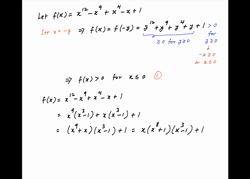 Let f(x) = x¹² - x⁹ + x⁴ - x + 1
Let x = -y ⇒ f(x) = f(-y) = y¹² + y⁹ + y⁴ + y + 1 > 0
≥ 0 for y ≥ 0
for
y ≥ 0
↓
-x ≥ 0
or x ≤ 0
⇒ f(x) > 0 for x ≤ 0 ①
f(x) = x¹² - x⁹ + x⁴ - x + 1
= x⁹(x³-1) + x(x³-1) + 1
= (x⁹+x)(x³-1) + 1 = x(x⁸+1)(x³-1) + 1